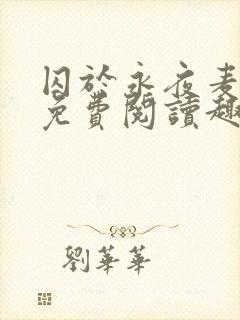 囚於永夜麦
免費閱讀趣
劉華華